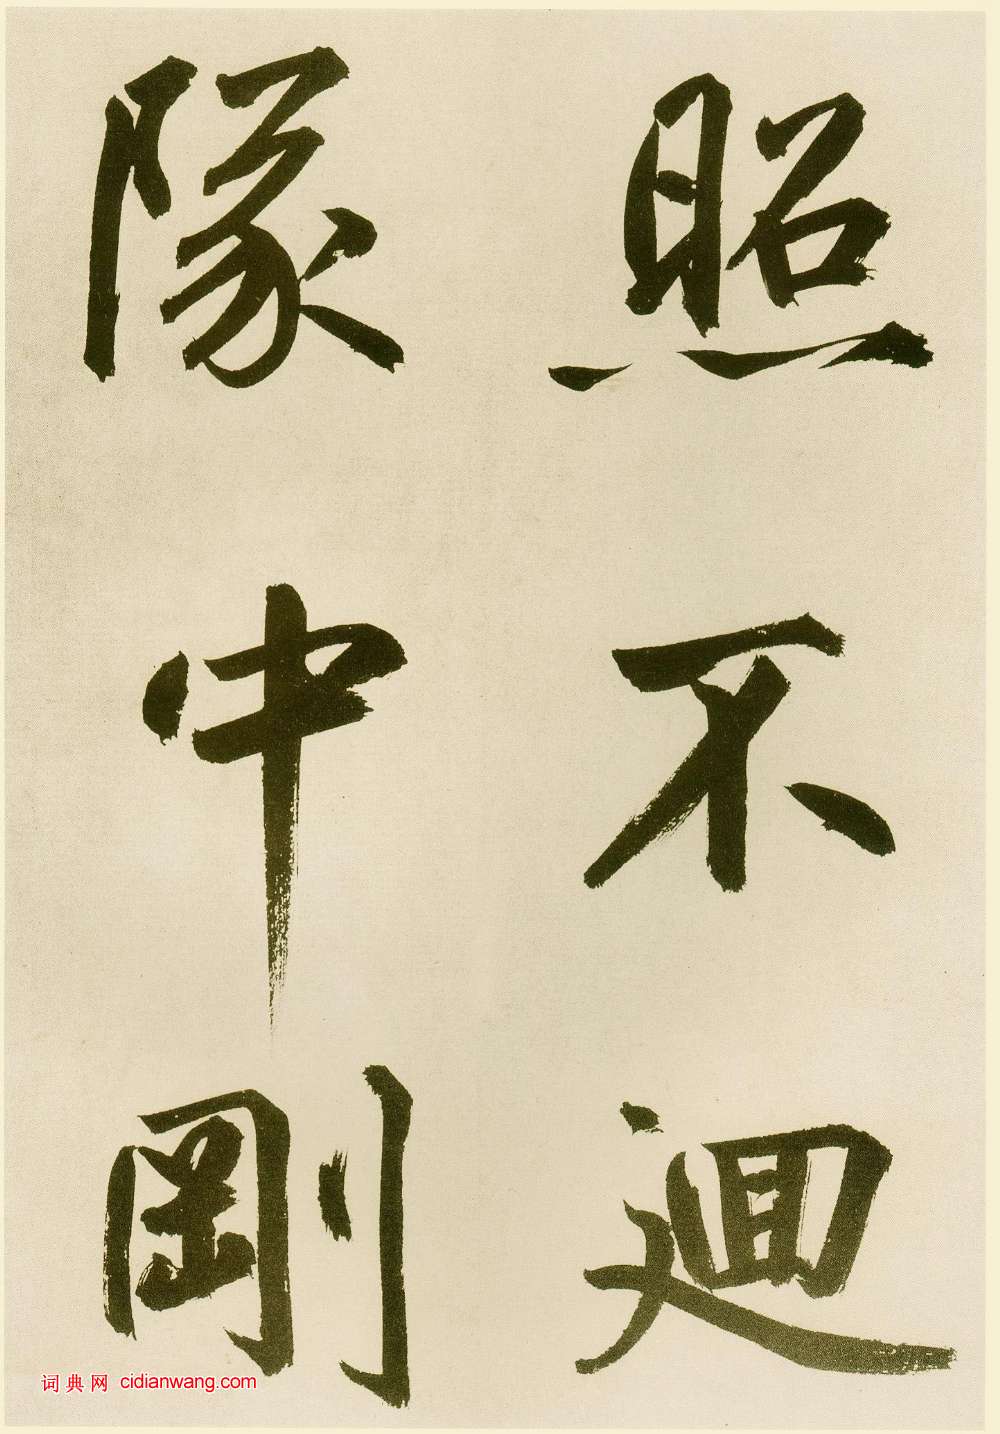 照不迴
隊中剛
词典网 cidianwang.com